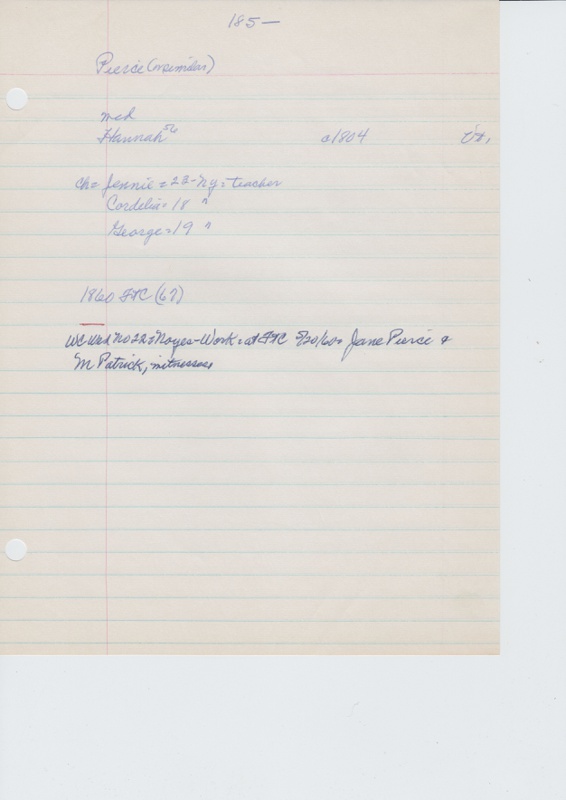 185—
Pierce
med
Hannah 56 c1804 Vt.
ch= Jennie = 22-NY= teacher
Cordelia= 18 "
George= 19 "
1860 FTC (67)
WC Wed No 22= Noyes-Work= at FTC 5/20/60= Jane Pierce &
M Patrick, witnesses